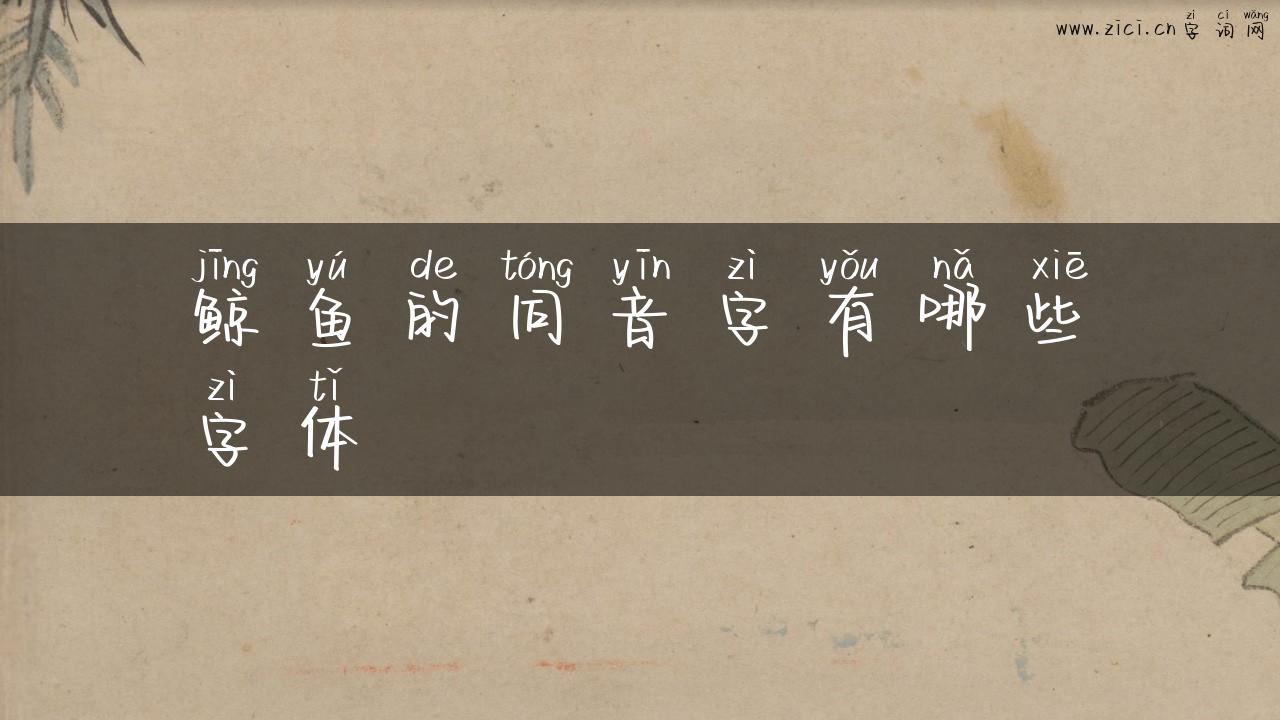 zì cí wǎng
www.zici.cn 字词网
jīng yú de tóng yīn zì yǒu nǎ xiē
鲸鱼的同音字有哪些
zì tǐ
字体